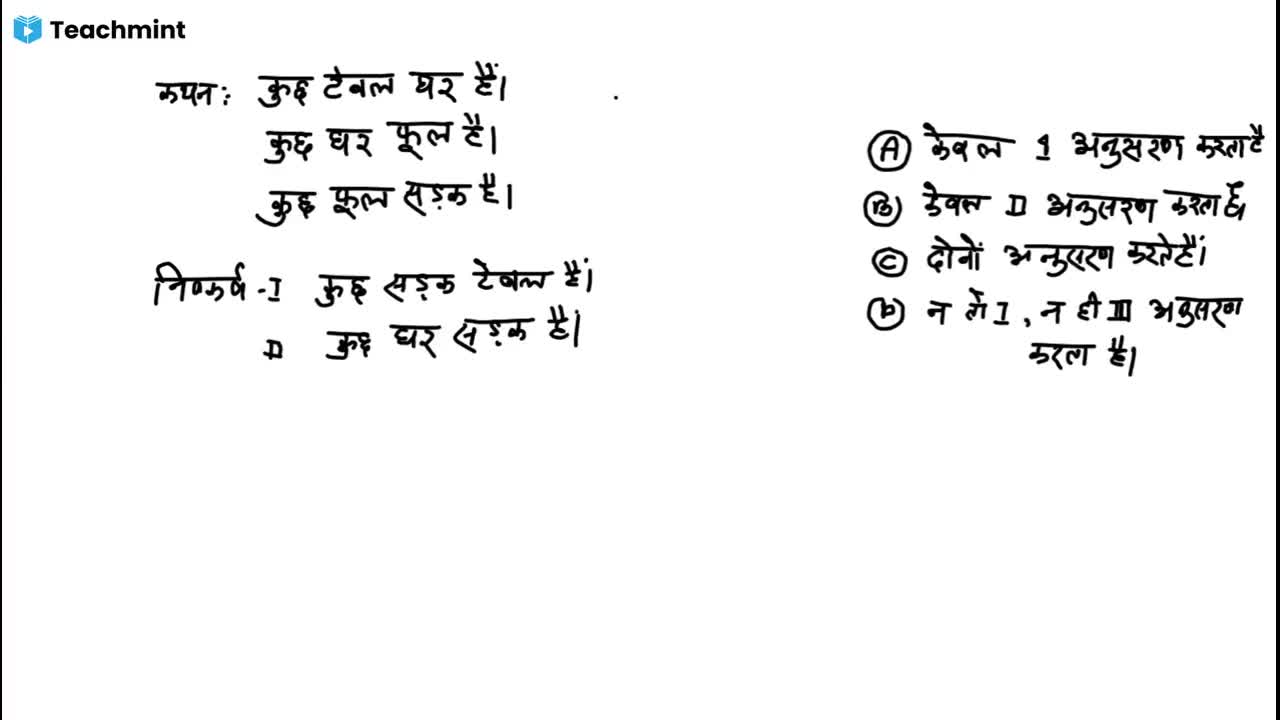 Teachmint
कथन: कुछ टेबल घर हैं।
कुछ घर फूल है।
कुछ फूल सड़क है।
निष्कर्ष - I कुछ सड़क टेबल हैं।
II कुछ घर सड़क है।
(A) केवल I अनुसरण करता है
(B) केवल II अनुसरण करता है
(C) दोनों अनुसरण करते हैं।
(D) न तो I, न ही II अनुसरण
करता है।